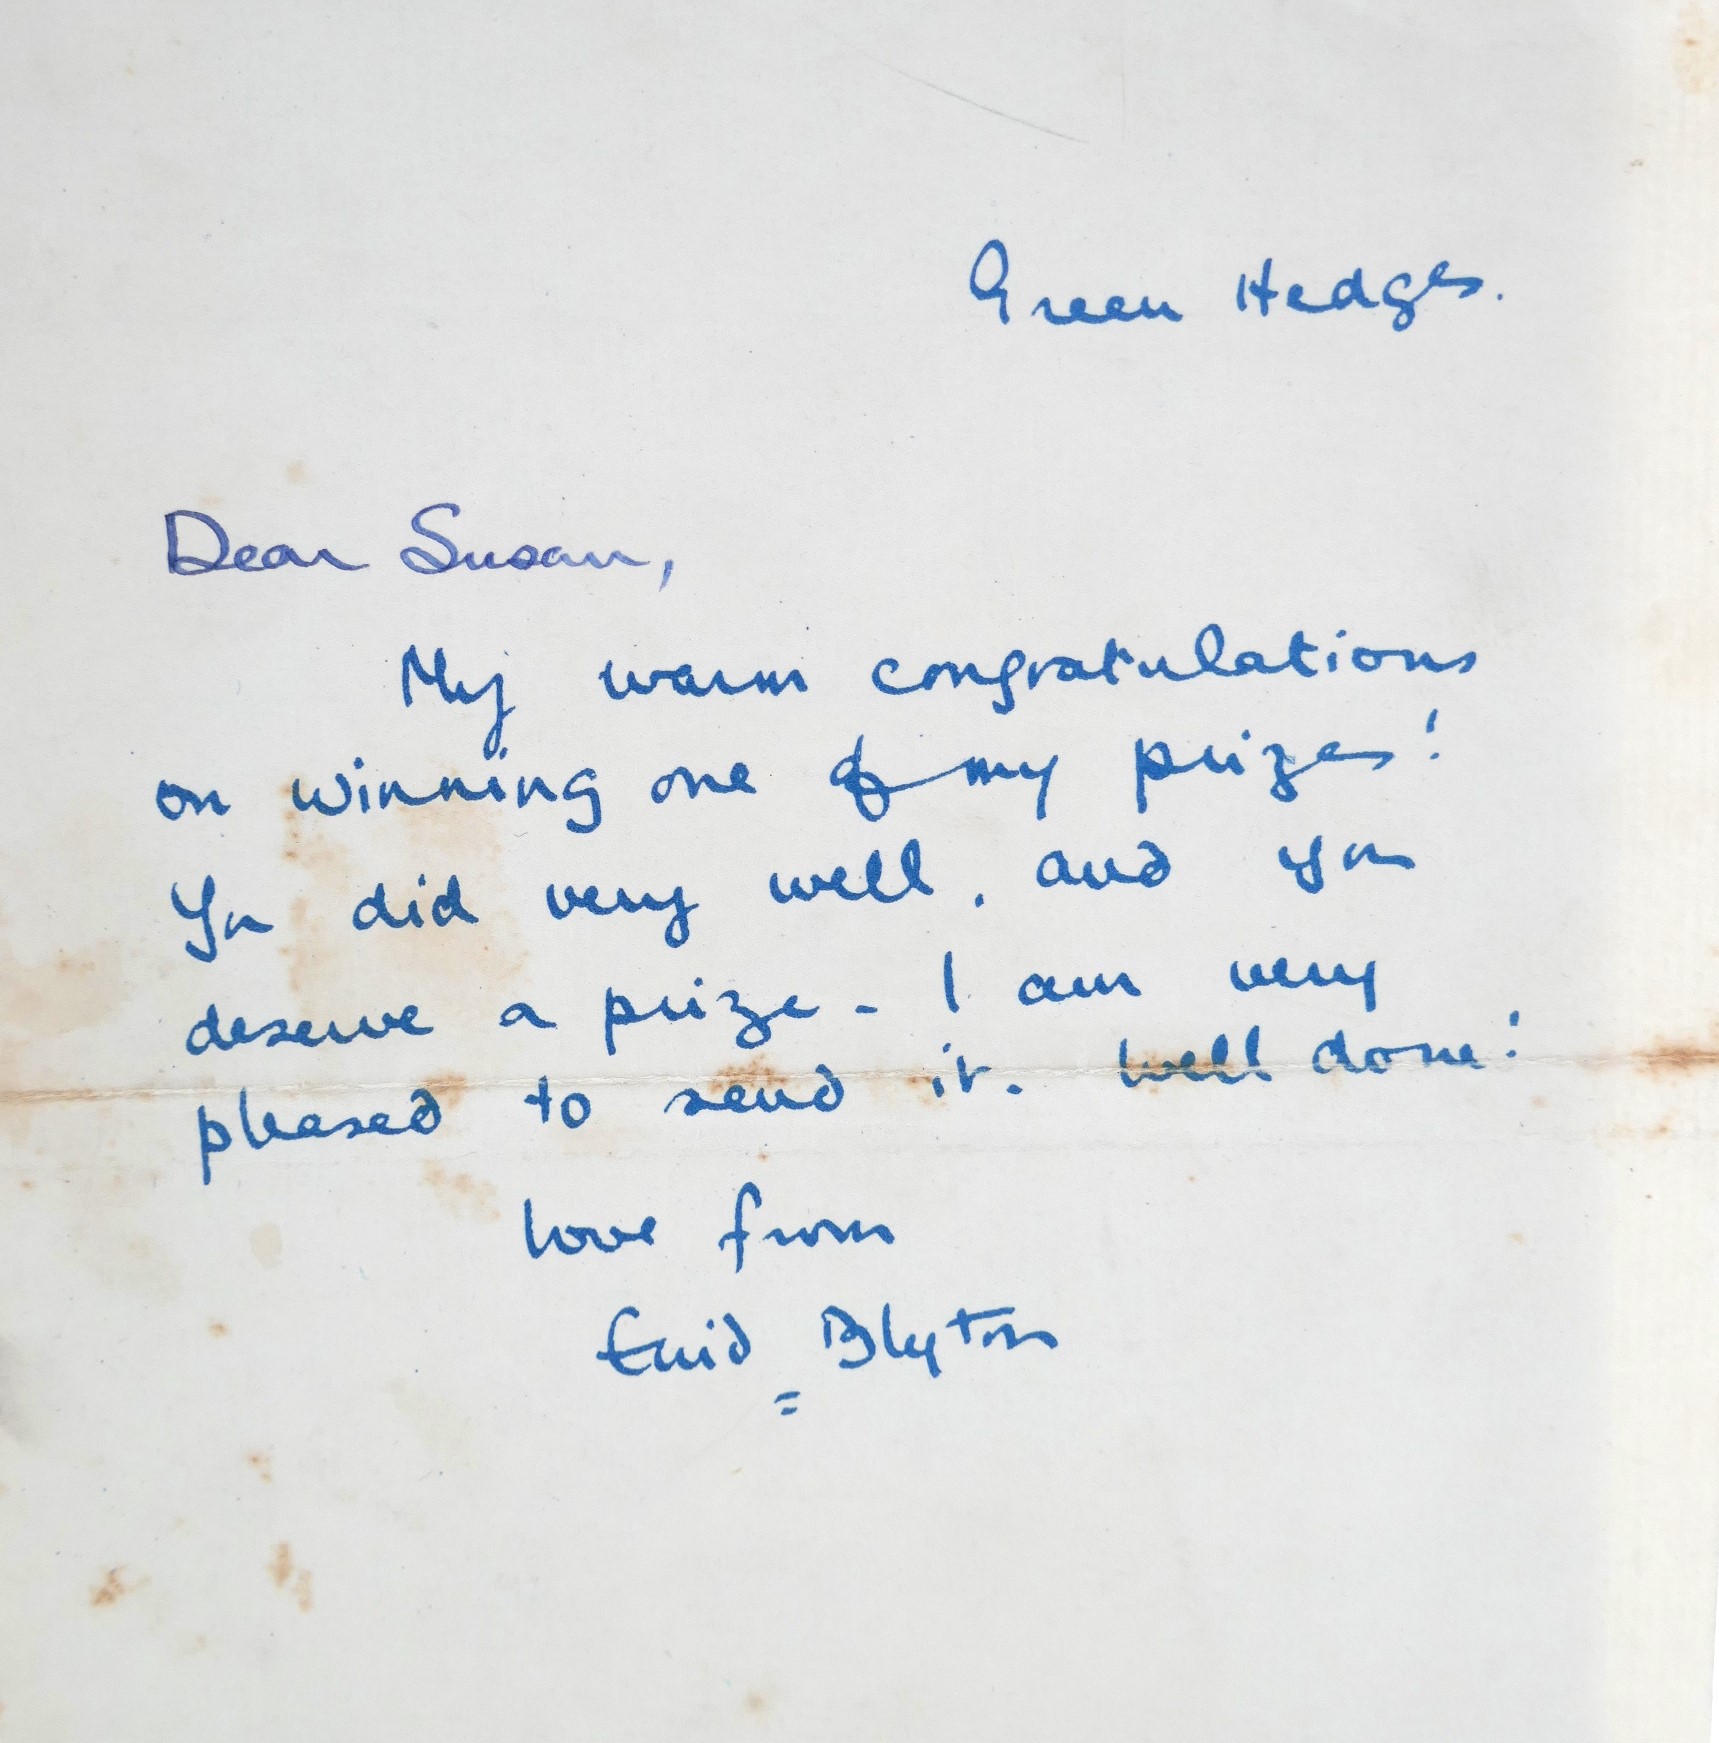 Green Hedges.
Dear Susan,
My warm congratulations
on winning one of my prizes!
You did very well, and you
deserve a prize - I am very
pleased to send it. Well done!
Love from
Enid Blyton